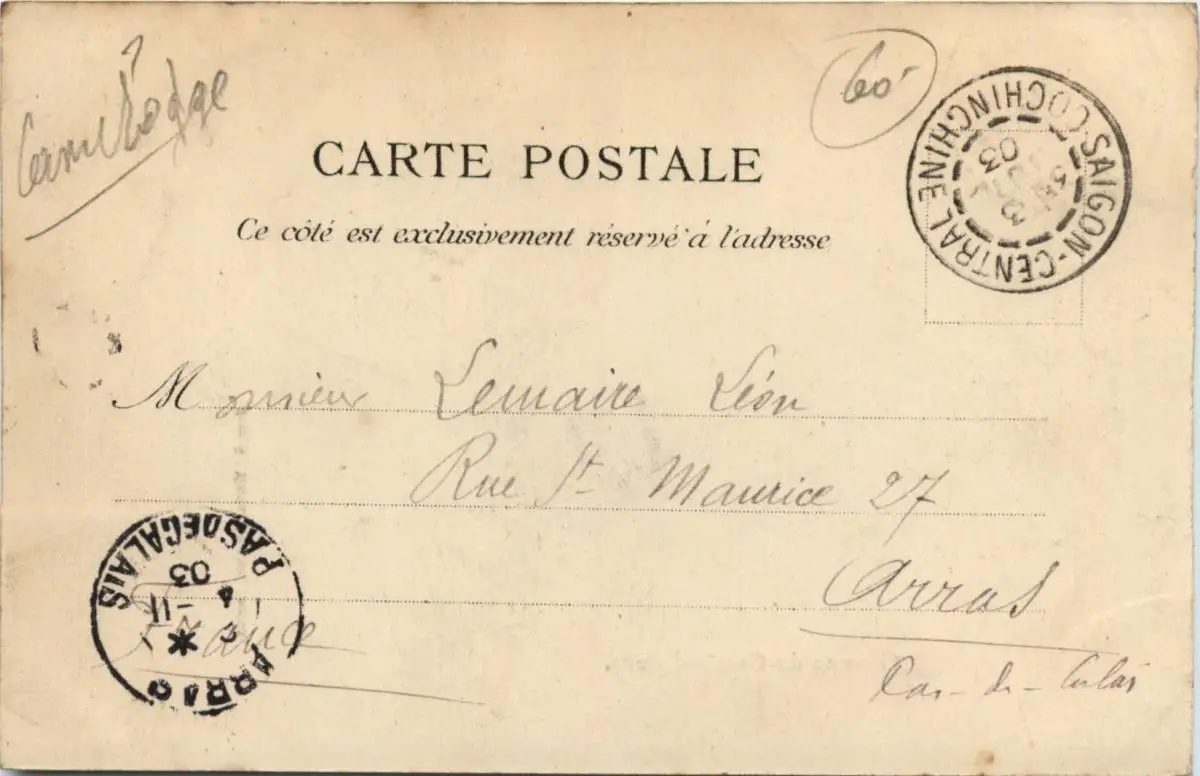 Cambodge
60
CARTE POSTALE
Ce côté est exclusivement réservé à l'adresse
SAIGON-CENTRAL COCHINCHINE
3
03
Monsieur Lemaire Léon
Rue St Maurice 27
Arras
Pas-de-Calais
France
ARRAS
PAS DE CALAIS
-11
4
03